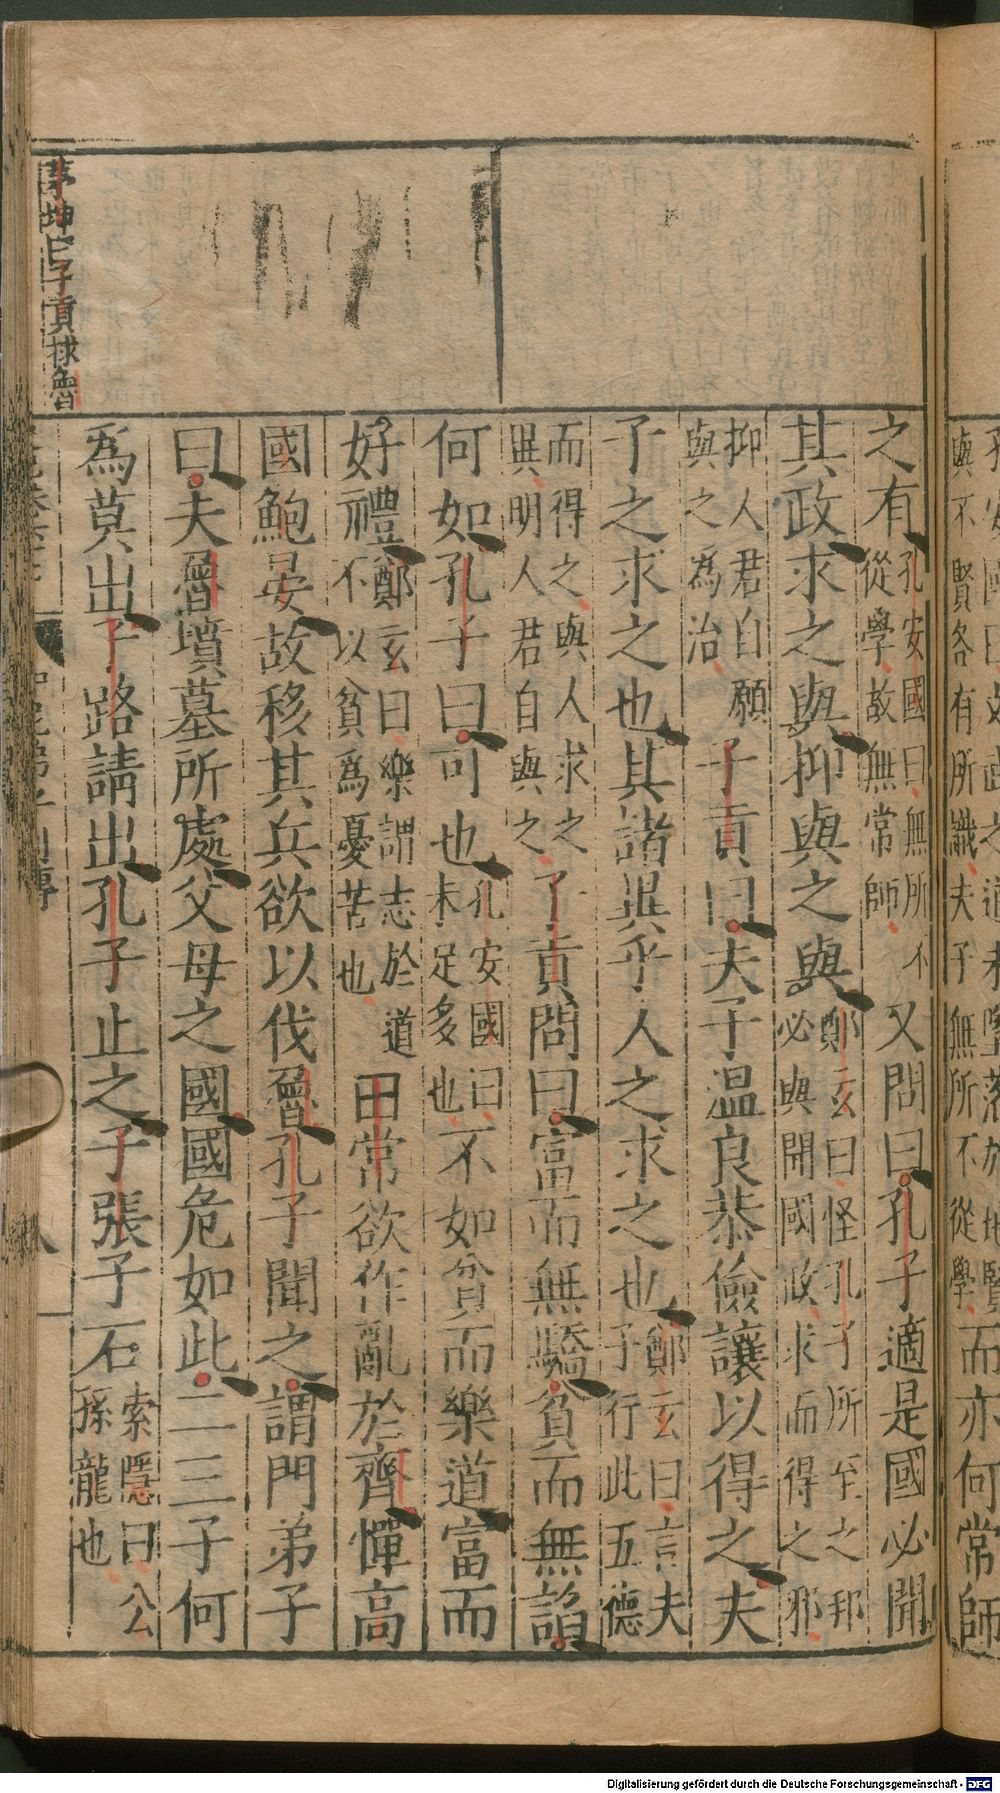 而亦何常師
之有孔安國曰無所不從學故無常師又問曰孔子適是國必聞
其政求之與抑與之與鄭玄曰怪孔子所至之邦必與聞國政求而得之邪
抑人君自願與之為治子貢曰夫子温良恭儉讓以得之夫
子之求之也其諸異乎人之求之也鄭玄曰言夫子行此五德
而得之與人求之異明人君自與之子貢問曰富而無驕貧而無諂
何如孔子曰可也孔安國曰未足多也不如貧而樂道富而
好禮鄭玄曰樂謂志於道不以貧為憂苦也田常欲作亂於齊憚高
國鮑晏故移其兵欲以伐魯孔子聞之謂門弟子
曰夫魯墳墓所處父母之國國危如此二三子何
為莫出子路請出孔子止之子張子石索隱曰公孫龍也
茅坤曰子貢救魯
與不賢各有所識夫子無所不從學
Digitalisierung gefördert durch die Deutsche Forschungsgemeinschaft - DFG